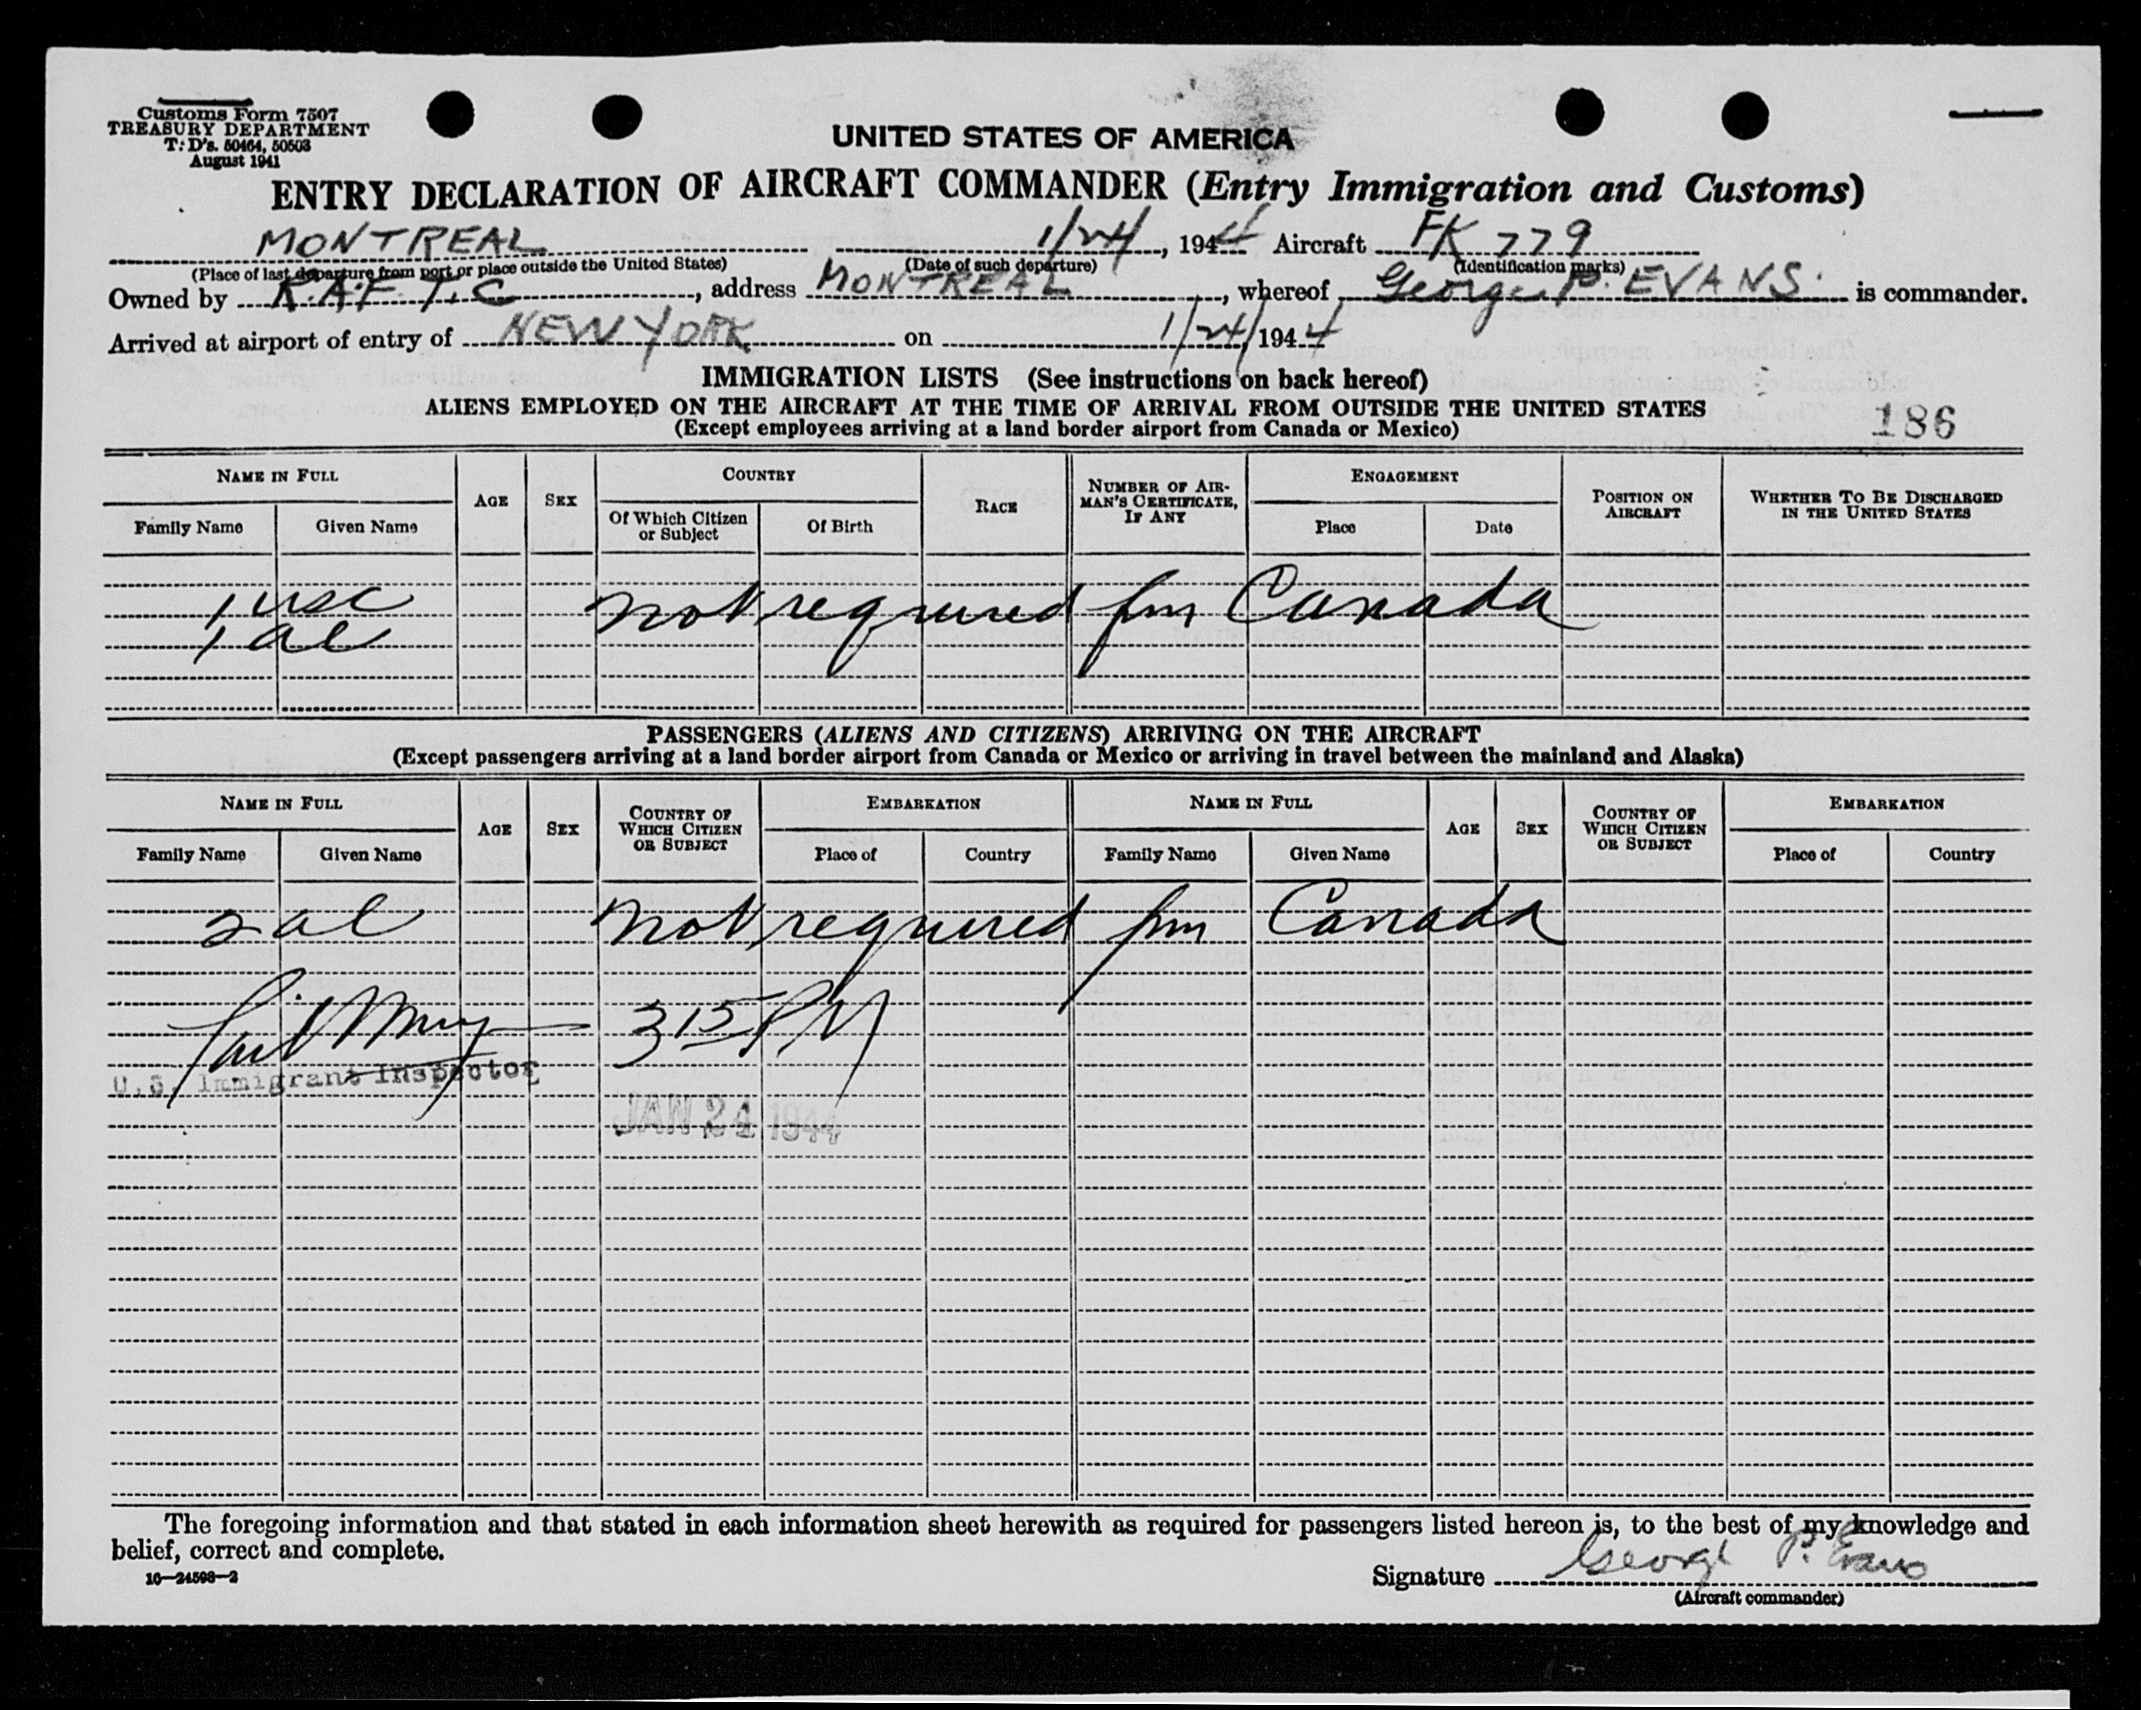 Customs Form 7507
TREASURY DEPARTMENT
T. D's. 50464, 50503
August 1941
UNITED STATES OF AMERICA
ENTRY DECLARATION OF AIRCRAFT COMMANDER (Entry Immigration and Customs)
MONTREAL 1/24, 1944 Aircraft FK 779
(Place of last departure from port or place outside the United States) (Date of such departure) (Identification marks)
Owned by R.A.F. T.C, address MONTREAL, whereof George P. EVANS. is commander.
Arrived at airport of entry of NEW YORK on 1/24/1944
IMMIGRATION LISTS (See instructions on back hereof)
ALIENS EMPLOYED ON THE AIRCRAFT AT THE TIME OF ARRIVAL FROM OUTSIDE THE UNITED STATES
186
(Except employees arriving at a land border airport from Canada or Mexico)
NAME IN FULL AGE SEX COUNTRY RACE NUMBER OF AIRMAN'S CERTIFICATE, IF ANY ENGAGEMENT POSITION ON AIRCRAFT WHETHER TO BE DISCHARGED IN THE UNITED STATES
Family Name Given Name Of Which Citizen or Subject Of Birth Place Date
1 usc not required fm Canada
1 al
PASSENGERS (ALIENS AND CITIZENS) ARRIVING ON THE AIRCRAFT
(Except passengers arriving at a land border airport from Canada or Mexico or arriving in travel between the mainland and Alaska)
NAME IN FULL AGE SEX COUNTRY OF WHICH CITIZEN OR SUBJECT EMBARKATION NAME IN FULL AGE SEX COUNTRY OF WHICH CITIZEN OR SUBJECT EMBARKATION
Family Name Given Name Place of Country Family Name Given Name Place of Country
2 al not required fm Canada
315 PM
U.S. Immigrant Inspector
JAN 24 1944
The foregoing information and that stated in each information sheet herewith as required for passengers listed hereon is, to the best of my knowledge and
belief, correct and complete.
16—24598-2
Signature George P. Evans
(Aircraft commander)